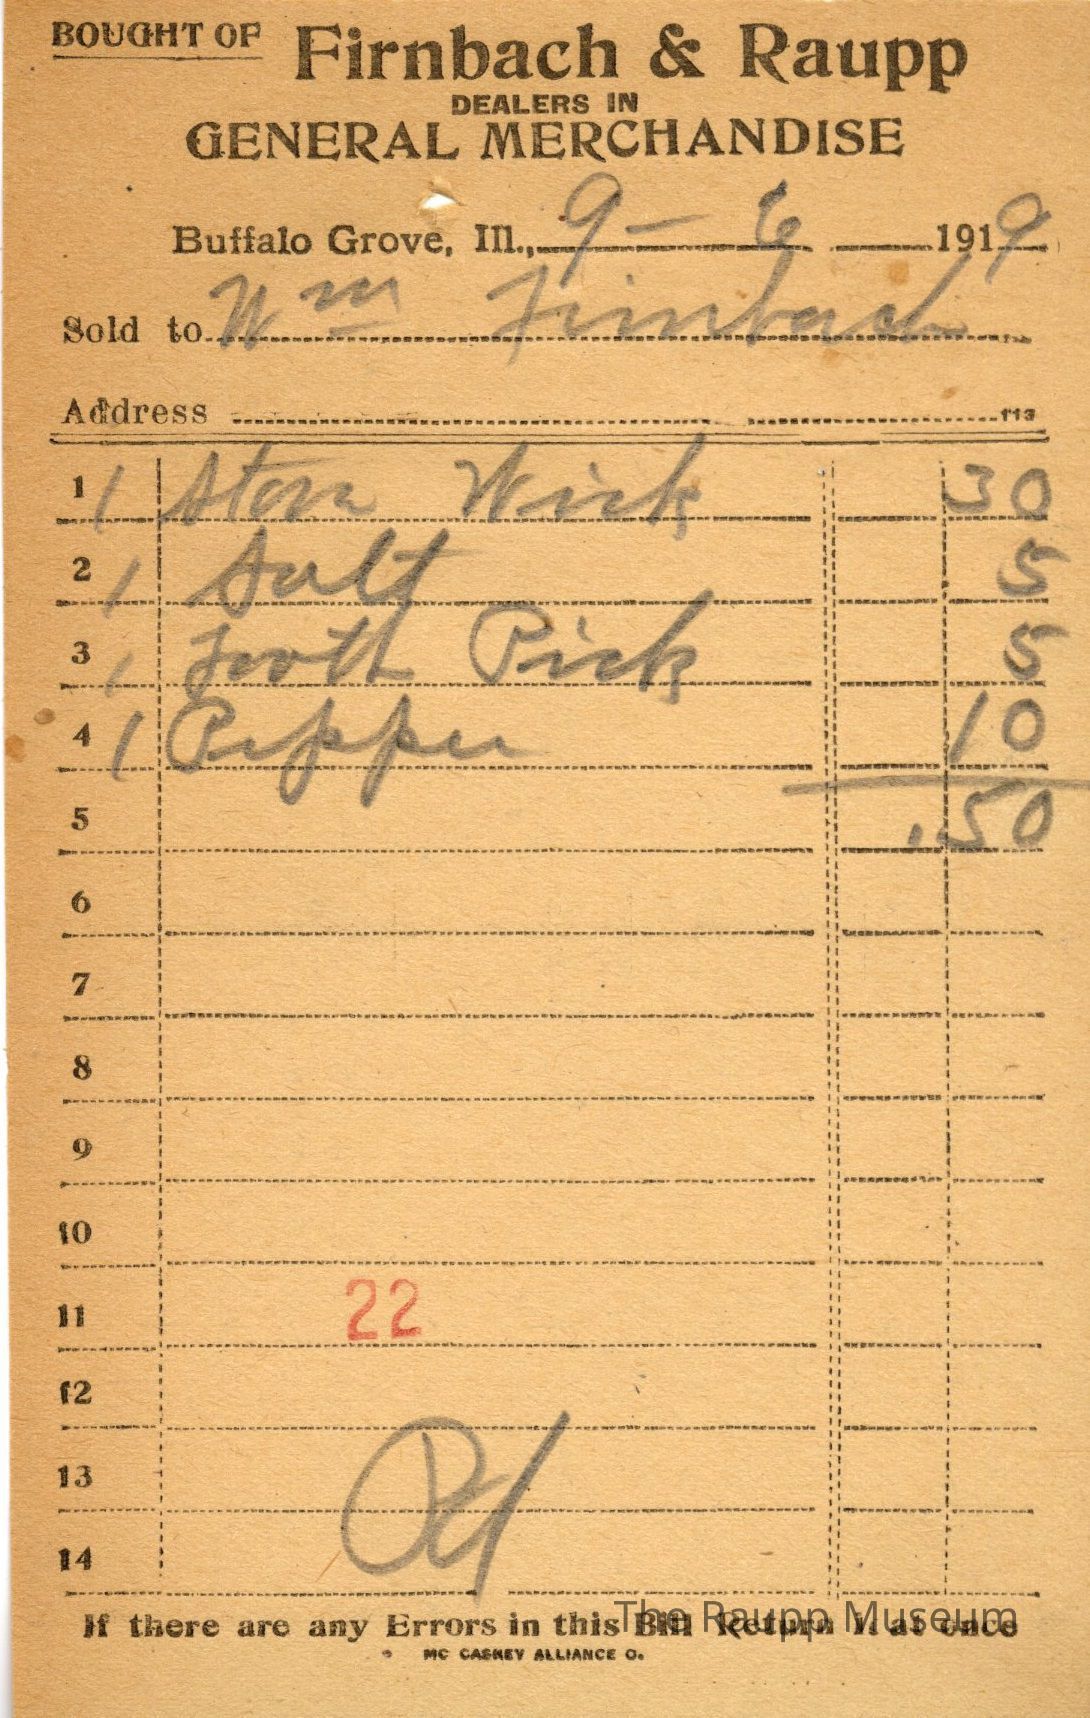 BOUGHT OF Firnbach & Raupp
DEALERS IN
GENERAL MERCHANDISE
Buffalo Grove, Ill., 9 - 6 1919
Sold to Wm Firnbach
Address 113
1 1 Stove Wick 30
2 1 Salt 5
3 1 Tooth Pick 5
4 1 Pepper 10
5 .50
6
7
8
9
10
11 22
12
13
14
If there are any Errors in this Bill Return it at once
The Raupp Museum
MC CASKEY ALLIANCE O.